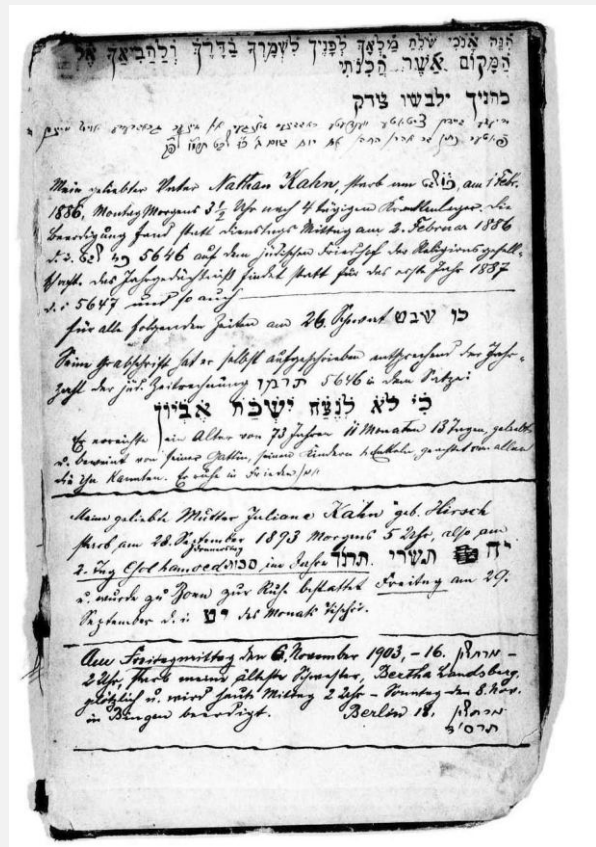 הנה אנכי שלח מלאך לפניך לשמרך בדרך ולהביאך אל
המקום אשר הכנתי
כהניך ילבשו צדק
Mein geliebter Vater Nathan Kahn, starb am כו שבט, am 1 Febr.
1886, Montag Morgens 3 1/2 Uhr nach 4 tägigem Krankenlager. Die
Beerdigung fand statt Dienstag Mittag am 2. Februar 1886
d. i. שבט 5646 auf dem jüdischen Friedhof der Religionsgesell-
schaft. Das Jahrgedächtniß findet statt für das erste Jahr 1887
d. i 5647 und so auch
für alle folgenden Zeiten am 26. Schwat כו שבט
Seine Grabschrift hat er selbst aufgeschrieben entsprechend der Jahr-
zahl der jüd. Zeitrechnung תרמו 5646 in dem Satze:
כי לא לנצח ישכח אביון
Er erreichte ein Alter von 73 Jahren 11 Monaten 13 Tagen, geliebt
u. beweint von seiner Gattin, seinen Kindern u. Enkeln, geachtet von allen
die ihn kannten. Er ruhe in Frieden אמן
Meine geliebte Mutter Juliane Kahn geb. Hirsch
starb am 28. September 1893 Morgens 5 Uhr, also am
Donnerstag
2. Tag Cholhamoed סכות im Jahre תרנד תשרי יח
u. wurde zu Bonn zur Ruhe bestattet Freitag am 29.
September d. i. יט des Monats Tischri.
Am Freitagmittag den 6. November 1903, - 16. מרחשון -
2 Uhr, starb meine älteste Schwester, Bertha Landsberg,
plötzlich u. wird heute Mittag 2 Uhr - Sonntag den 8. Nov.
in Bingen beerdigt. Berlin 18. מרחשון
תרס"ד